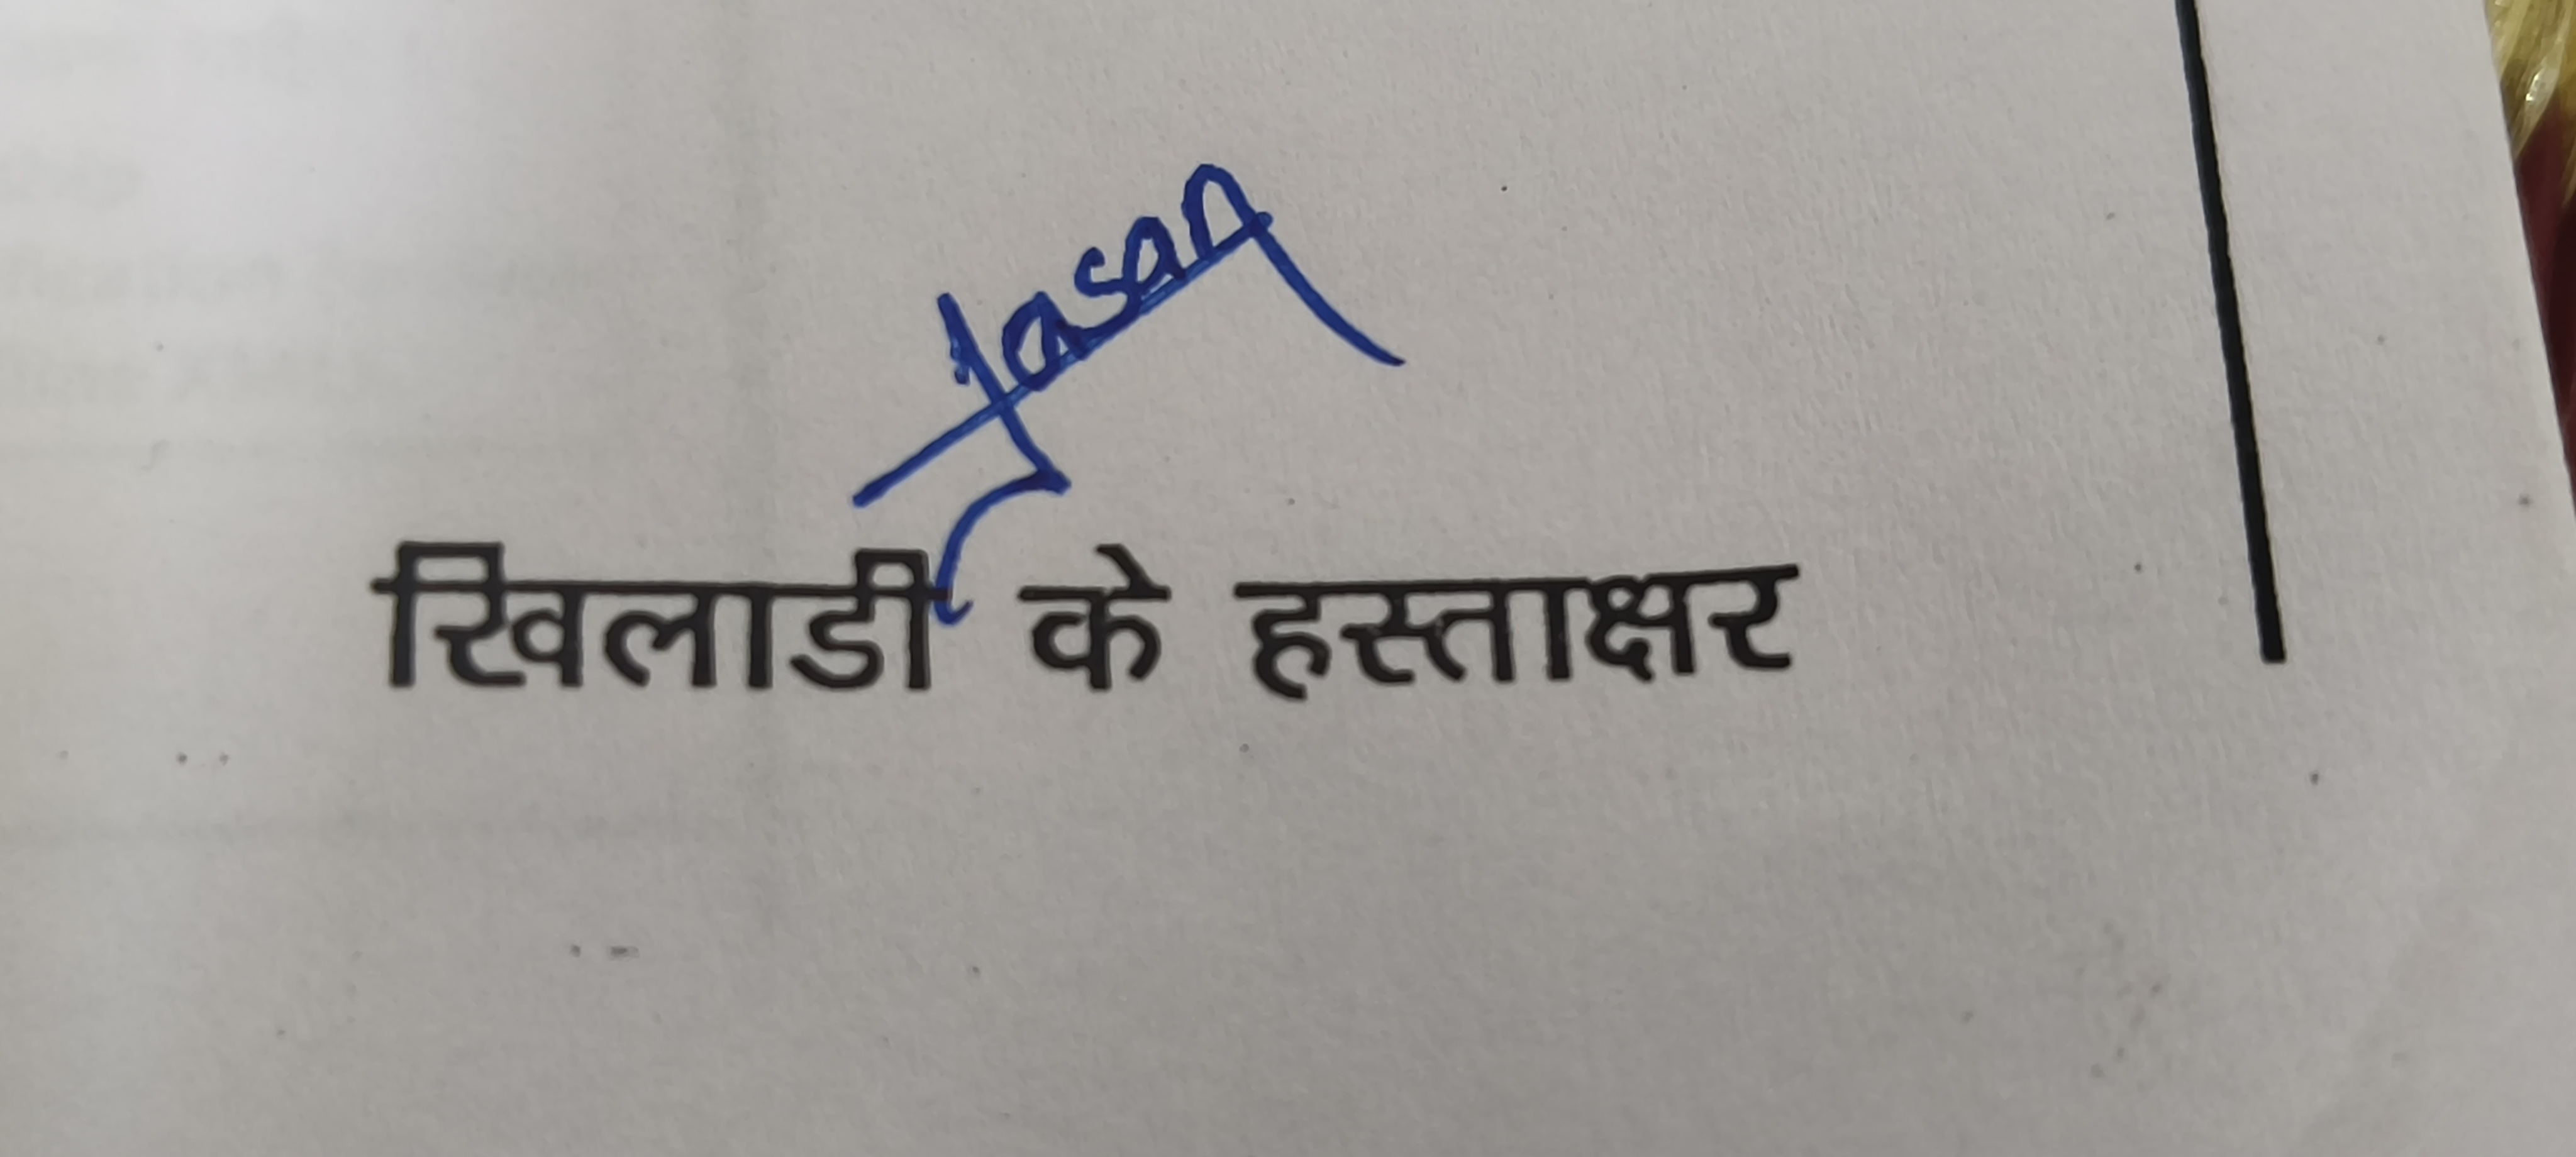 Jasan
खिलाडी के हस्ताक्षर